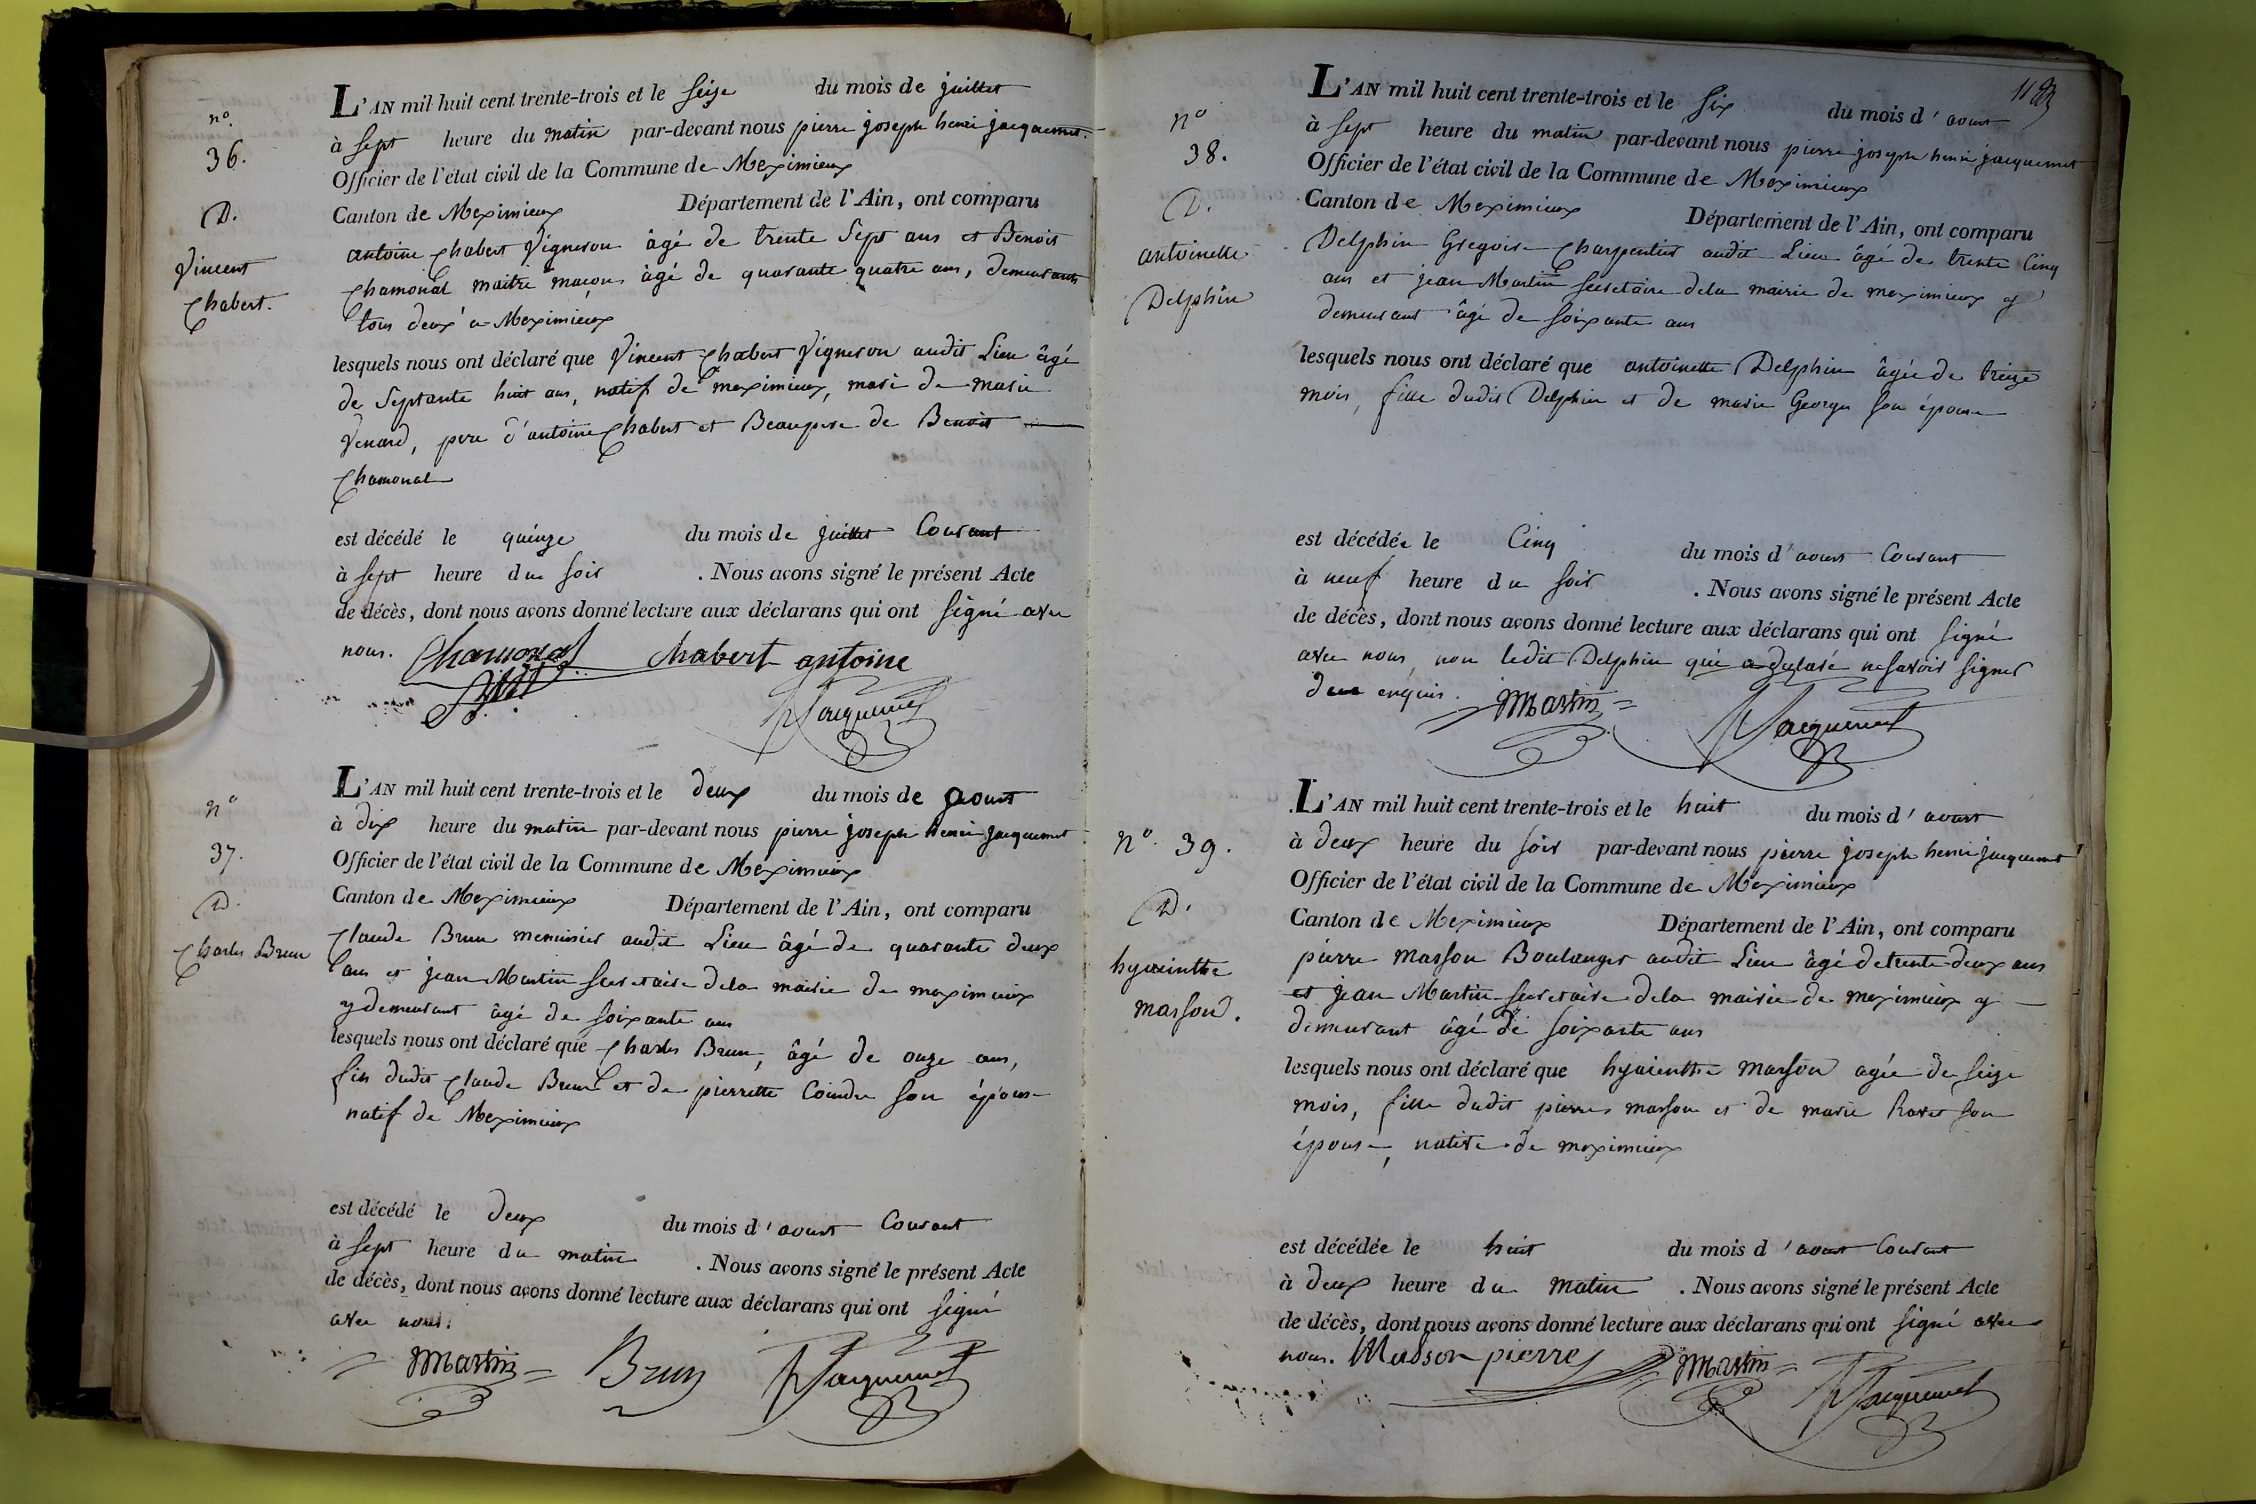 nº.
36.
D.
Vincent
Chabert.
L'AN mil huit cent trente-trois et le seize du mois de juillet
à sept heure du matin par-devant nous pierre joseph henri jacquemet
Officier de l'état civil de la Commune de Meximieux
Canton de Meximieux Département de l'Ain, ont comparu
antoine Chabert Vigneron âgé de trente sept ans et Benoit
Chamonal maitre maçon âgé de quarante quatre ans, demeurants
tous deux a Meximieux
lesquels nous ont déclaré que Vincent Chabert Vigneron audit Lieu âgé
de Septante huit ans, natif de meximieux, mari de marie
Venard, pere d'antoine Chabert et Beaupere de Benoit
Chamonal
est décédé le quinze du mois de juillet Courant
à sept heure du soir . Nous avons signé le présent Acte
de décès, dont nous avons donné lecture aux déclarans qui ont signé avec
nous. Chamonal chabert antoine
Jacquemet
nº
37.
D.
Charles Brun
L'AN mil huit cent trente-trois et le deux du mois de aoust
à dix heure du matin par-devant nous pierre joseph henri jacquemet
Officier de l'état civil de la Commune de Meximieux
Canton de Meximieux Département de l'Ain, ont comparu
Claude Brun menuisier audit Lieu âgé de quarante deux
ans et jean Martin secretaire dela mairie de meximieux
y demeurant âgé de soixante ans
lesquels nous ont déclaré que Charles Brun, âgé de onze ans,
fils dudit Claude Brun et de pierrette Coindre son épouse
natif de Meximieux
est décédé le deux du mois d'aoust Courant
à sept heure du matin . Nous avons signé le présent Acte
de décès, dont nous avons donné lecture aux déclarans qui ont signé
avec nous.
Martin Brun Jacquemet
nº
38.
D.
antoinette
Delphin
L'AN mil huit cent trente-trois et le six du mois d'aoust
à sept heure du matin par-devant nous pierre joseph henri jacquemet
Officier de l'état civil de la Commune de Meximieux
Canton de Meximieux Département de l'Ain, ont comparu
Delphin Gregoire Charpentier audit Lieu âgé de trente Cinq
ans et jean Martin secretaire dela mairie de meximieux y
demeurant âgé de soixante ans
lesquels nous ont déclaré que antoinette Delphin âgée de treize
mois, fille dudit Delphin et de marie Georges son épouse
est décédée le Cinq du mois d'aoust Courant
à neuf heure du soir . Nous avons signé le présent Acte
de décès, dont nous avons donné lecture aux déclarans qui ont signé
avec nous, non ledit Delphin qui a déclaré ne savoir signer
de ce enquis. Martin Jacquemet
nº. 39.
D.
hyacinthe
masson.
L'AN mil huit cent trente-trois et le huit du mois d'aoust
à deux heure du soir par-devant nous pierre joseph henri jacquemet
Officier de l'état civil de la Commune de Meximieux
Canton de Meximieux Département de l'Ain, ont comparu
pierre masson Boulanger audit Lieu âgé de trente deux ans
et jean Martin secretaire dela mairie de meximieux y
demeurant âgé de soixante ans
lesquels nous ont déclaré que hyacinthe masson agée de seize
mois, fille dudit pierre masson et de marie Ravet son
épouse, native de meximieux
est décédée le huit du mois d'aoust Courant
à deux heure du matin . Nous avons signé le présent Acte
de décès, dont nous avons donné lecture aux déclarans qui ont signé avec
nous. Masson pierre Martin Jacquemet